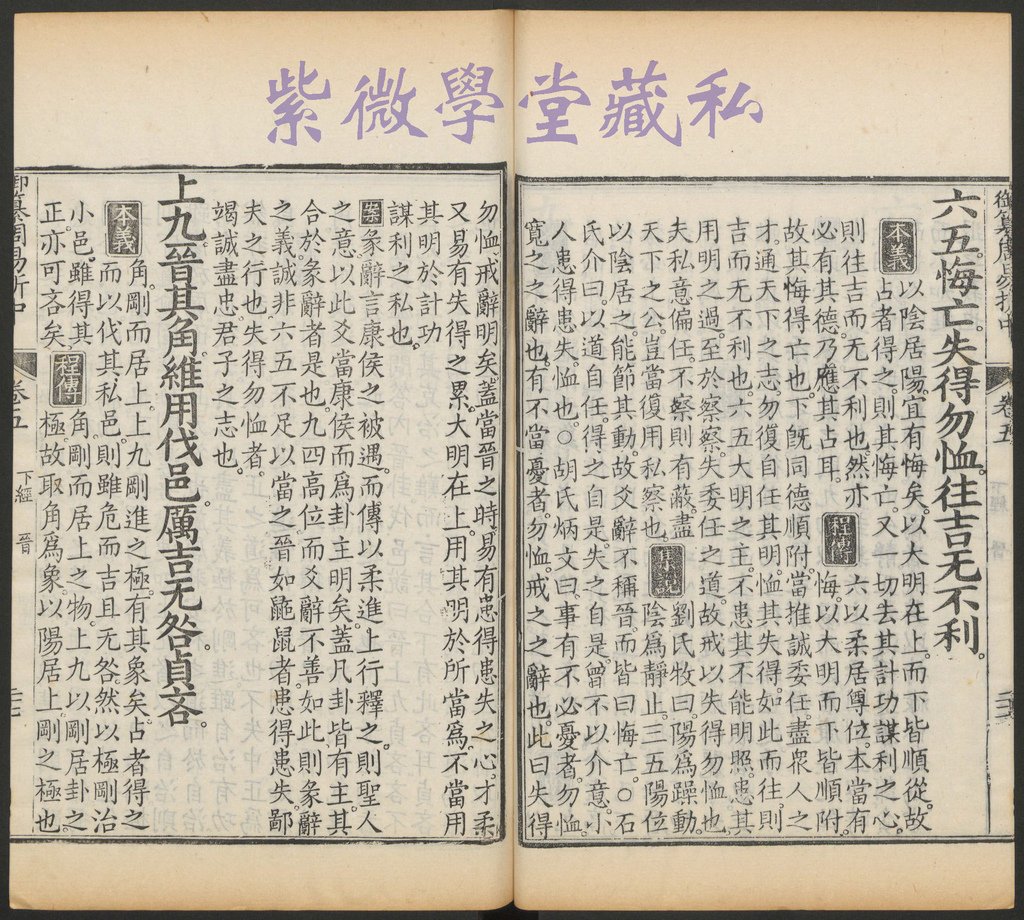 紫微學堂藏私
御纂周易折中
卷五
下經 晉
六五悔亡失得勿恤往吉无不利
本義 以陰居陽宜有悔矣以大明在上而下皆順從故
占者得之則其悔亡又一切去其計功謀利之心
則往吉而无不利也然亦
必有其德乃應其占耳 程傳 六以柔居尊位本當有
悔以大明而下皆順附
故其悔得亡也下旣同德順附當推誠委任盡衆人之
才通天下之志勿復自任其明恤其失得如此而往則
吉而无不利也六五大明之主不患其不能明照患其
用明之過至於察察失委任之道故戒以失得勿恤也
夫私意偏任不察則有蔽盡
天下之公豈當復用私察也 集說 劉氏牧曰陽爲躁動
陰爲靜止三五陽位
以陰居之能節其動故爻辭不稱晉而皆曰悔亡○石
氏介曰以道自任得之自是失之自是曾不以介意小
人患得患失恤也○胡氏炳文曰事有不必憂者勿恤
寬之之辭也有不當憂者勿恤戒之之辭也此曰失得
勿恤戒辭明矣蓋當晉之時易有患得患失之心才柔
又易有失得之累大明在上用其明於所當爲不當用
其明於計功
謀利之私也
案 彖辭言康侯之被遇而傳以柔進上行釋之則聖人
之意以此爻當康侯而爲卦主明矣蓋凡卦皆有主其
合於彖辭者是也九四高位而爻辭不善如此則彖辭
之義誠非六五不足以當之晉如鼫鼠者患得患失鄙
夫之行也失得勿恤者
竭誠盡忠君子之志也
上九晉其角維用伐邑厲吉无咎貞吝
本義 角剛而居上上九剛進之極有其象矣占者得之
而以伐其私邑則雖危而吉且无咎然以極剛治
小邑雖得其
正亦可吝矣 程傳 角剛而居上之物上九以剛居卦之
極故取角爲象以陽居上剛之極也
御纂周易折中
卷五
下經 晉